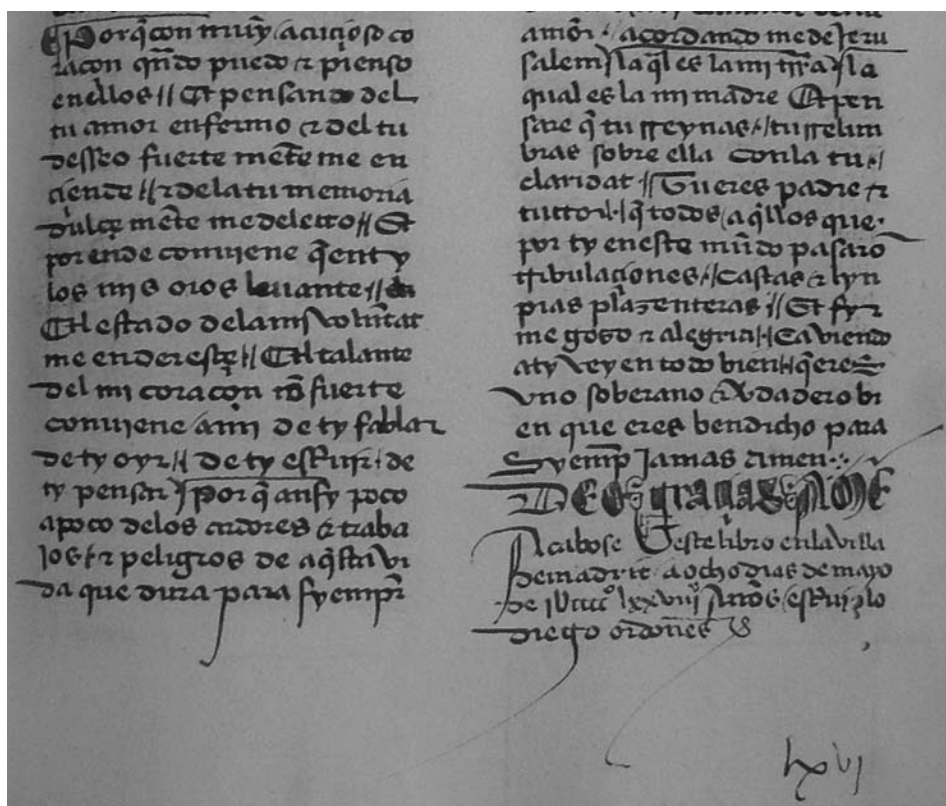 Porq̃ con muỹ acuçioso co
raçon qñdo puedo ⁊ pienso
enellos // Et pensando del
tu amor enfermo ⁊ del tu
desseo fuerte mẽte me en
çiende // ⁊ dela tu memoria
dulçe mẽte me deleito // Et
por ende conviene q̃ en ty
los mis oios leuante //
Et el estado dela mi volũtat
me enderesçe // Et el talante
del mi coraçon fuerte
conviene a mi de ty fablar
de ty oyr // de ty escriuir de
ty pensar Por q̃ ansy poco
apoco delos ardores ⁊ traba
ios ⁊ peligros de aq̃sta vi
da que dura para syempr̃
amor / acordando me de Jeru
salem / la q̃l es la mi trr̃a / la
qual es la mi madre Et pen
sare q̃ tu rreynas // tu rrelum
bras sobre ella con la tu
claridat // Tu eres padre ⁊
tuttor // q̃ todos aq̃llos que
por ty en este mũdo pasarõ
tribulaçiones // castas ⁊ lyn
pias plazenteras // Et sy
me gozo ⁊ alegria // Ca viendo
aty vey en todo bien // q̃ eres
vno soberano ⁊ v̉dadero bi
en que eres bendicho para
Syemp̃ Jamas Amen
DEO graçias
Acabose este libro enla villa
de madrit a ocho dias de mayo
de lxxviijº Años escriuiolo
diego ordoñes
lxvj